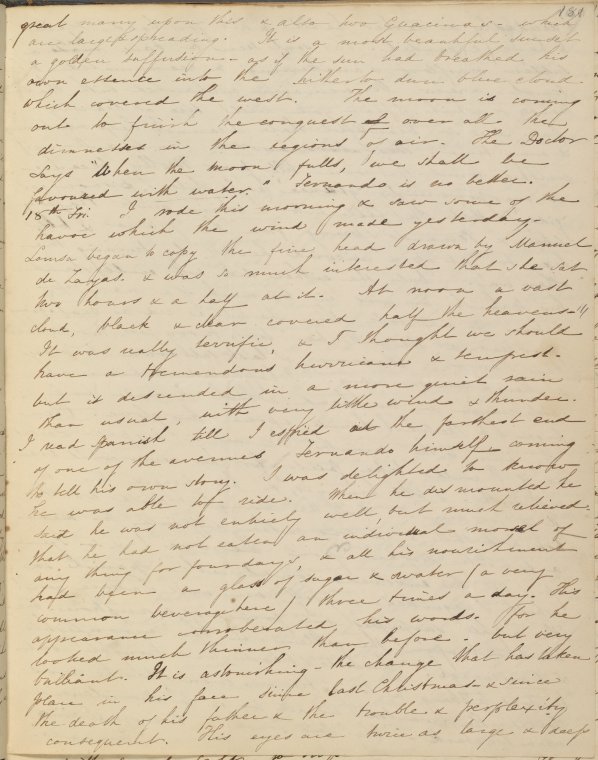 181
great many upon this & also two Guacimas - which
are large & spreading. It is a most beautiful sunset
a golden suffusion - as if the sun had breathed his
own essence into the hitherto dun blue cloud
which covered the west. The moon is coming
out to finish the conquest over all the
dimnesses in the regions of air. The Doctor
says "When the moon fulls, we shall be
favoured with water." Fernando is no better.
18th Fri. I rode this morning & saw some of the
havoc which the wind made yesterday.
Louisa began to copy the fine head drawn by Manuel
de Zayas. & was so much interested that she sat
two hours & a half at it. At noon a vast
cloud, black & clear covered half the heavens -
It was really terrific, & I thought we should
have a tremendous hurricane & tempest -
but it descended in a more quiet rain
than usual, with very little wind & thunder.
I read Spanish till I espied at the farthest end
of one of the avenues Fernando himself coming
to tell his own story. I was delighted to know
he was able to ride. When he dismounted he
said he was not entirely well, but much relieved
that he had not eaten an individual morsel of
any thing for four days, & all his nourishment
had been a glass of sugar & water (a very
common beverage here) three times a day. His
appearance corroberated his words. for he
looked much thinner than before - but very
brilliant. It is astonishing - the change that has taken
place in his face since last Christmas - & since
the death of his father & the trouble & perplexity
consequent. His eyes are twice as large & deep